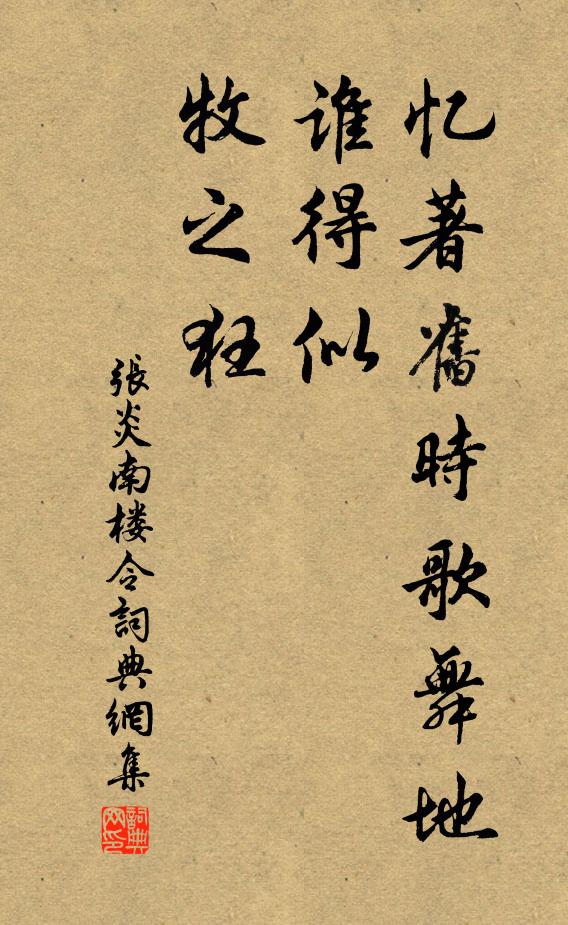 忆著舊時歌舞地
谁得似
牧之狂
張炎南楼令詞典網集
詞典
网印